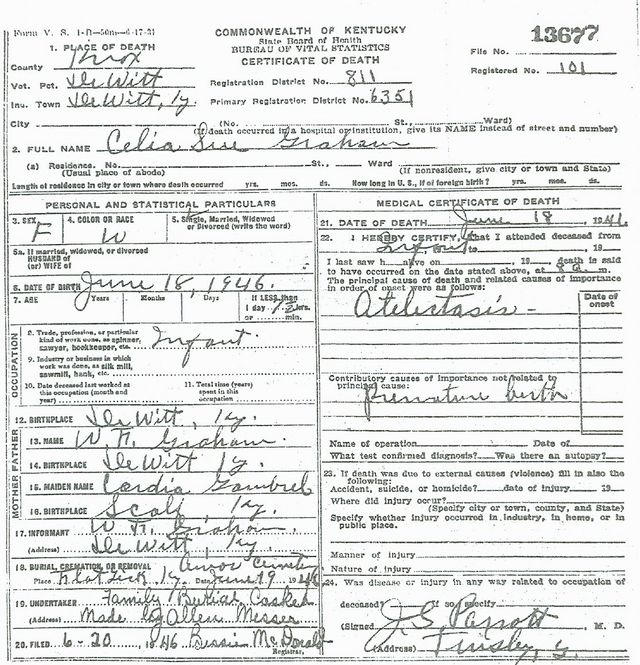 Form V. S. 1-D—50m—6-17-21
COMMONWEALTH OF KENTUCKY
State Board of Health
BUREAU OF VITAL STATISTICS
CERTIFICATE OF DEATH
13677
File No.
Registered No. 101
1. PLACE OF DEATH
County Knox
Vot. Pct. De Witt
Inc. Town De Witt, Ky.
Registration District No. 811
Primary Registration District No. 6351
City (No. St., Ward)
(If death occurred in a hospital or institution, give its NAME instead of street and number)
2. FULL NAME Celia Sue Graham
(a) Residence. No. St., Ward
(Usual place of abode) (If nonresident, give city or town and State)
Length of residence in city or town where death occurred yrs. mos. ds. How long in U. S., if of foreign birth? yrs. mos. ds.
PERSONAL AND STATISTICAL PARTICULARS
3. SEX F
4. COLOR OR RACE W
5. Single, Married, Widowed or Divorced (write the word)
5a. If married, widowed, or divorced
HUSBAND of
(or) WIFE of
6. DATE OF BIRTH June 18, 1946.
7. AGE Years Months Days If LESS than
1 day 1/2 hrs.
or min.
OCCUPATION
8. Trade, profession, or particular
kind of work done, as spinner,
sawyer, bookkeeper, etc. Infant.
9. Industry or business in which
work was done, as silk mill,
sawmill, bank, etc.
10. Date deceased last worked at
this occupation (month and
year)
11. Total time (years)
spent in this
occupation
12. BIRTHPLACE De Witt, Ky.
FATHER
13. NAME W. H. Graham.
14. BIRTHPLACE De Witt Ky.
MOTHER
15. MAIDEN NAME Cordia Gambrel
16. BIRTHPLACE Scalf, Ky.
17. INFORMANT W. H. Graham.
(Address) De Witt, Ky.
18. BURIAL, CREMATION, OR REMOVAL Cemetery
Place Flat Lick Ky. Date June 19 1946
19. UNDERTAKER Family Burial Casket
(Address) Made by Allen Messer
20. FILED 6-20, 1946 Bessie McDonald
Registrar.
MEDICAL CERTIFICATE OF DEATH
21. DATE OF DEATH June 18, 1946
22. I HEREBY CERTIFY, that I attended deceased from
Infant to , 19
I last saw h alive on , 19 , death is said
to have occurred on the date stated above, at 8 a. m.
The principal cause of death and related causes of importance
in order of onset were as follows:
Date of
onset
Atelectasis -
Contributory causes of importance not related to
principal cause:
Premature birth
Name of operation Date of
What test confirmed diagnosis? Was there an autopsy?
23. If death was due to external causes (violence) fill in also the
following:
Accident, suicide, or homicide? date of injury 19
Where did injury occur?
(Specify city or town, county, and State)
Specify whether injury occurred in industry, in home, or in
public place.
Manner of injury
Nature of injury
24. Was disease or injury in any way related to occupation of
deceased? If so, specify
(Signed J. S. Parrott, M. D.
(Address) Tinsley